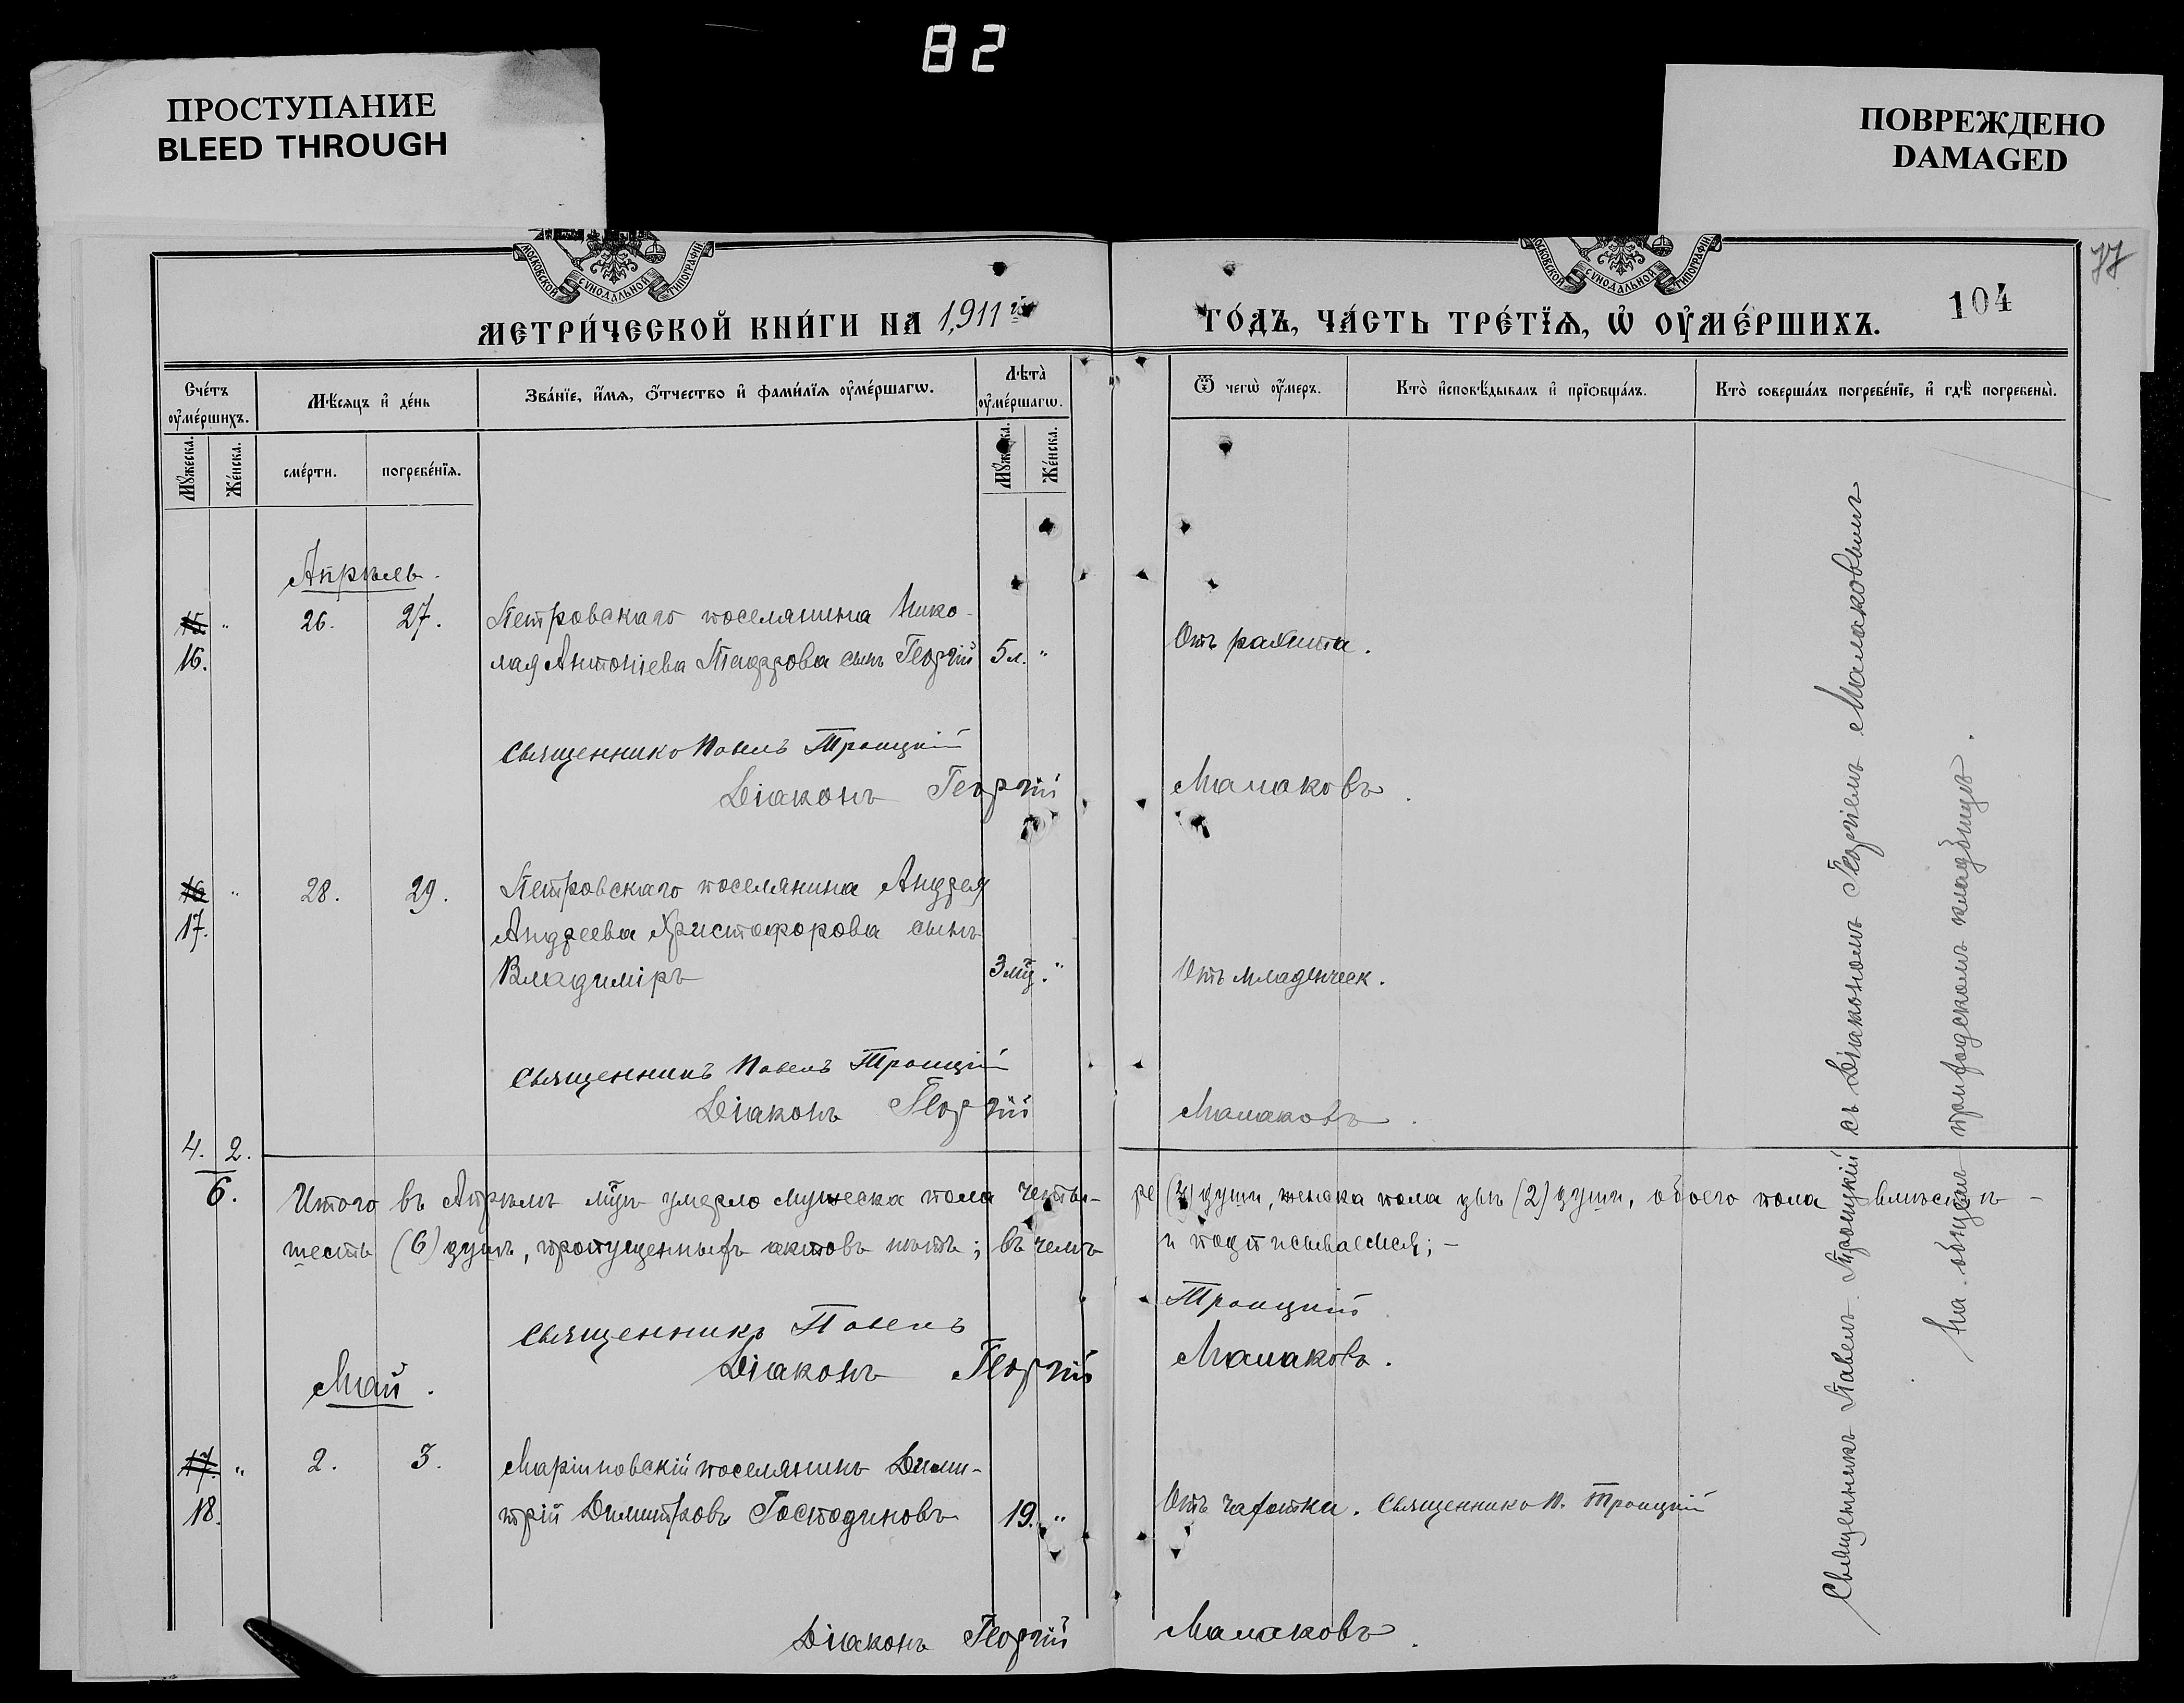 82
ПРОСТУПАНИЕ
BLEED THROUGH
ПОВРЕЖДЕНО
DAMAGED
77
104
МОСКОВСКОЙ СѴНОДАЛЬНОЙ ТИПОГРАФІИ
МОСКОВСКОЙ СѴНОДАЛЬНОЙ ТИПОГРАФІИ
МЕТРИ́ЧЕСКОЙ КНИ́ГИ НА 1911й ГО́ДЪ, ЧА́СТЬ ТРЕ́ТІѦ, Ѡ҆ ОУ҆МЕ́РШИХЪ.
Сче́тъ оу҆ме́ршихъ.
Мѣ́сяцъ и҆ де́нь
Зва́ніе, и҆́мя, ѻ҆́тчество и҆ фами́лія оу҆ме́ршагѡ.
Лѣта̀ оу҆ме́ршагѡ.
Ѿ чегѡ̀ оу҆́меръ.
Кто̀ и҆сповѣ́дывалъ и҆ прїѡбща́лъ.
Кто̀ соверша́лъ погребе́ніе, и҆ гдѣ̀ погребены̀.
Мꙋ́жеска.
Же́нска.
сме́рти.
погребе́нїя.
Мꙋ́жеска.
Же́нска.
Апрѣль.
15 " 26. 27. Петровскаго поселянина Нико-
16. лая Антоніева Тодорова сынъ Георгій 5 л. " Отъ рахита.
Священникъ Павелъ Троицкій
Діаконъ Георгій Малаковъ.
16 " 28. 29. Петровскаго поселянина Андрея
17. Андреева Христофорова сынъ
Владиміръ 3 мц. " Отъ младенческ.
Священникъ Павелъ Троицкій
Діаконъ Георгій Малаковъ.
4. 2.
6. Итого въ Апрѣлѣ мцѣ умерло мужеска пола четы-ре (4) души, женска пола двѣ (2) души, обоего пола вмѣстѣ -
шесть (6) душъ, пропущенныхъ актовъ нѣтъ; въ чемъ и подписываемся; -
Священникъ Павелъ Троицкій
Діаконъ Георгій Малаковъ.
Май.
17. " 2. 3. Маріиновскій поселянинъ Дими-
18. трій Димитровъ Господиновъ 19. " Отъ чахотки. Священникъ П. Троицкій
Діаконъ Георгій Малаковъ.
Священникъ Павелъ Троицкій съ Діакономъ Георгіемъ Малаковымъ
На общемъ приходскомъ кладбищѣ.